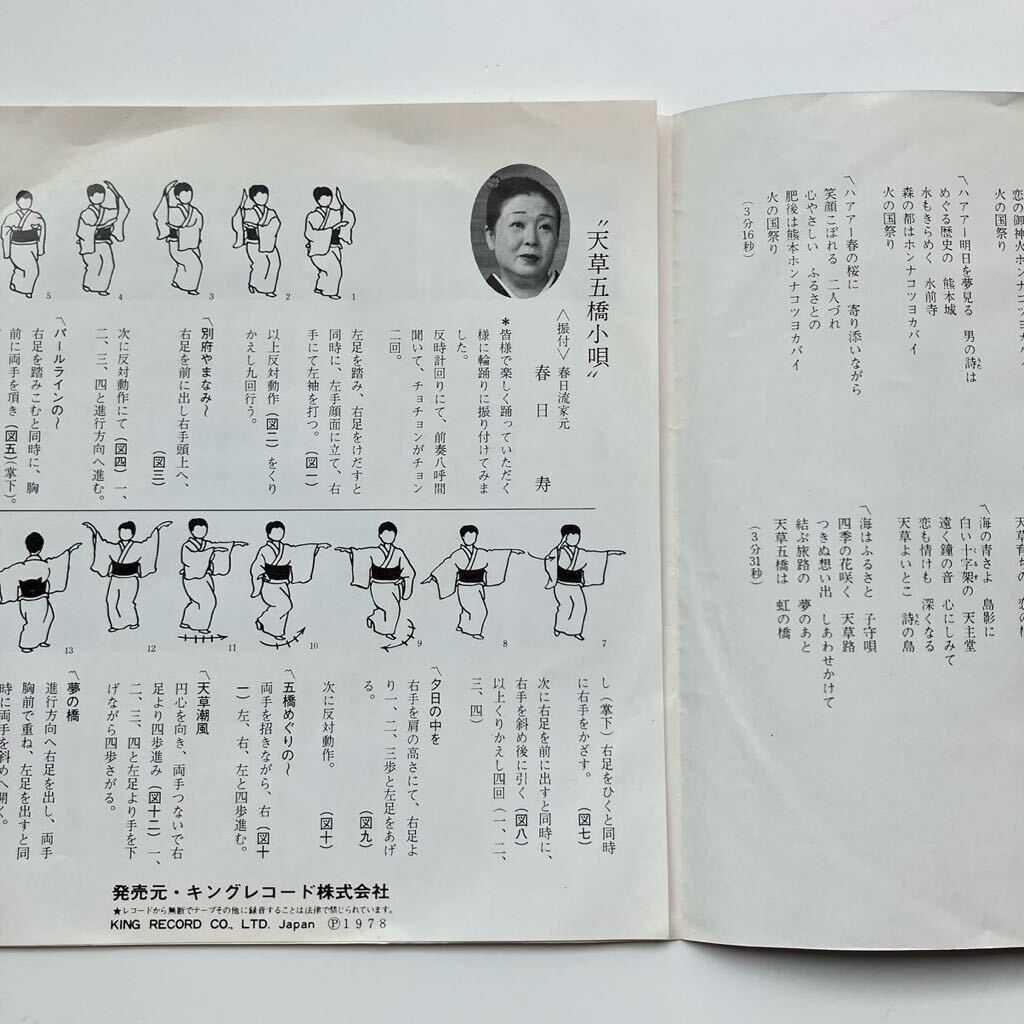 火の国祭り
〽ハアアー明日を夢見る 男の詩は
めぐる歴史の 熊本城
水もきらめく 水前寺
森の都はホンナコツヨカバイ
火の国祭り
〽ハアアー春の桜に 寄り添いながら
笑顔こぼれる 二人づれ
心やさしい ふるさとの
肥後は熊本ホンナコツヨカバイ
火の国祭り
(3分16秒)
〽海の青さよ 島影に
白い十字架の 天主堂
遠く鐘の音 心にしみて
恋も情けも 深くなる
天草よいとこ 詩の島
〽海はふるさと 子守唄
四季の花咲く 天草路
つきぬ想い出 しあわせかけて
結ぶ旅路の 夢のあと
天草五橋は 虹の橋
(3分31秒)
“天草五橋小唄”
〈振付〉春日流家元
春日 寿
*皆様で楽しく踊っていただく
様に輪踊りに振り付けてみま
した。
反時計回りにて、前奏八呼間
聞いて、チョチョンがチョン
二回。
左足を踏み、右足をけだすと
同時に、左手顔面に立て、右
手にて左袖を打つ。(図一)
以上反対動作(図二)をくり
かえし九回行う。
〽別府やまなみ〜
右足を前に出し右手頭上へ、
(図三)
次に反対動作にて(図四)一、
二、三、四と進行方向へ進む。
〽パールラインの〜
右足を踏みこむと同時に、胸
前に両手を頂き(図五)(掌下)。
1
2
3
4
5
7
8
9
10
11
12
13
し(掌下)右足をひくと同時
に右手をかざす。(図七)
次に右足を前に出すと同時に、
右手を斜め後に引く(図八)
以上くりかえし四回(一、二、
三、四)
〽夕日の中を
右手を肩の高さにて、右足よ
り一、二、三歩と左足をあげ
る。(図九)
次に反対動作。(図十)
〽五橋めぐりの〜
両手を招きながら、右(図十
一)左、右、左と四歩進む。
〽天草潮風
円心を向き、両手つないで右
足より四歩進み(図十二)一、
二、三、四と左足より手を下
げながら四歩さがる。
〽夢の橋
進行方向へ右足を出し、両手
胸前で重ね、左足を出すと同
時に両手を斜めへ開く。
発売元・キングレコード株式会社
★レコードから無断でテープその他に録音することは法律で禁じられています。
KING RECORD CO., LTD. Japan Ⓟ1978